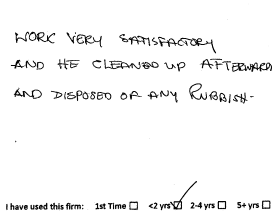 WORK VERY SATISFACTORY
AND HE CLEANED UP AFTERWARDS
AND DISPOSED OF ANY RUBBISH-
I have used this firm: 1st Time ☐ <2 yrs ☑ 2-4 yrs ☐ 5+ yrs ☐